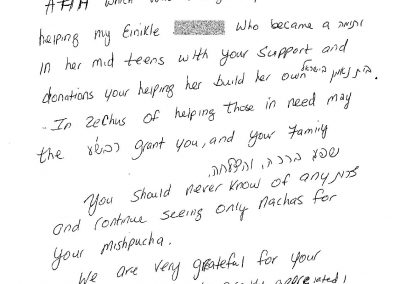 helping my Einikle who became a יתומה
in her mid teens with your support and
donations your helping her build her own בית נאמן בישראל.
In zechus of helping those in need may
the רבש"ע grant you, and your Family
שפע ברכה, והצלחה,
You should never know of any צרות
and continue seeing only Nachas for
your mishpucha.
We are very grateful for your